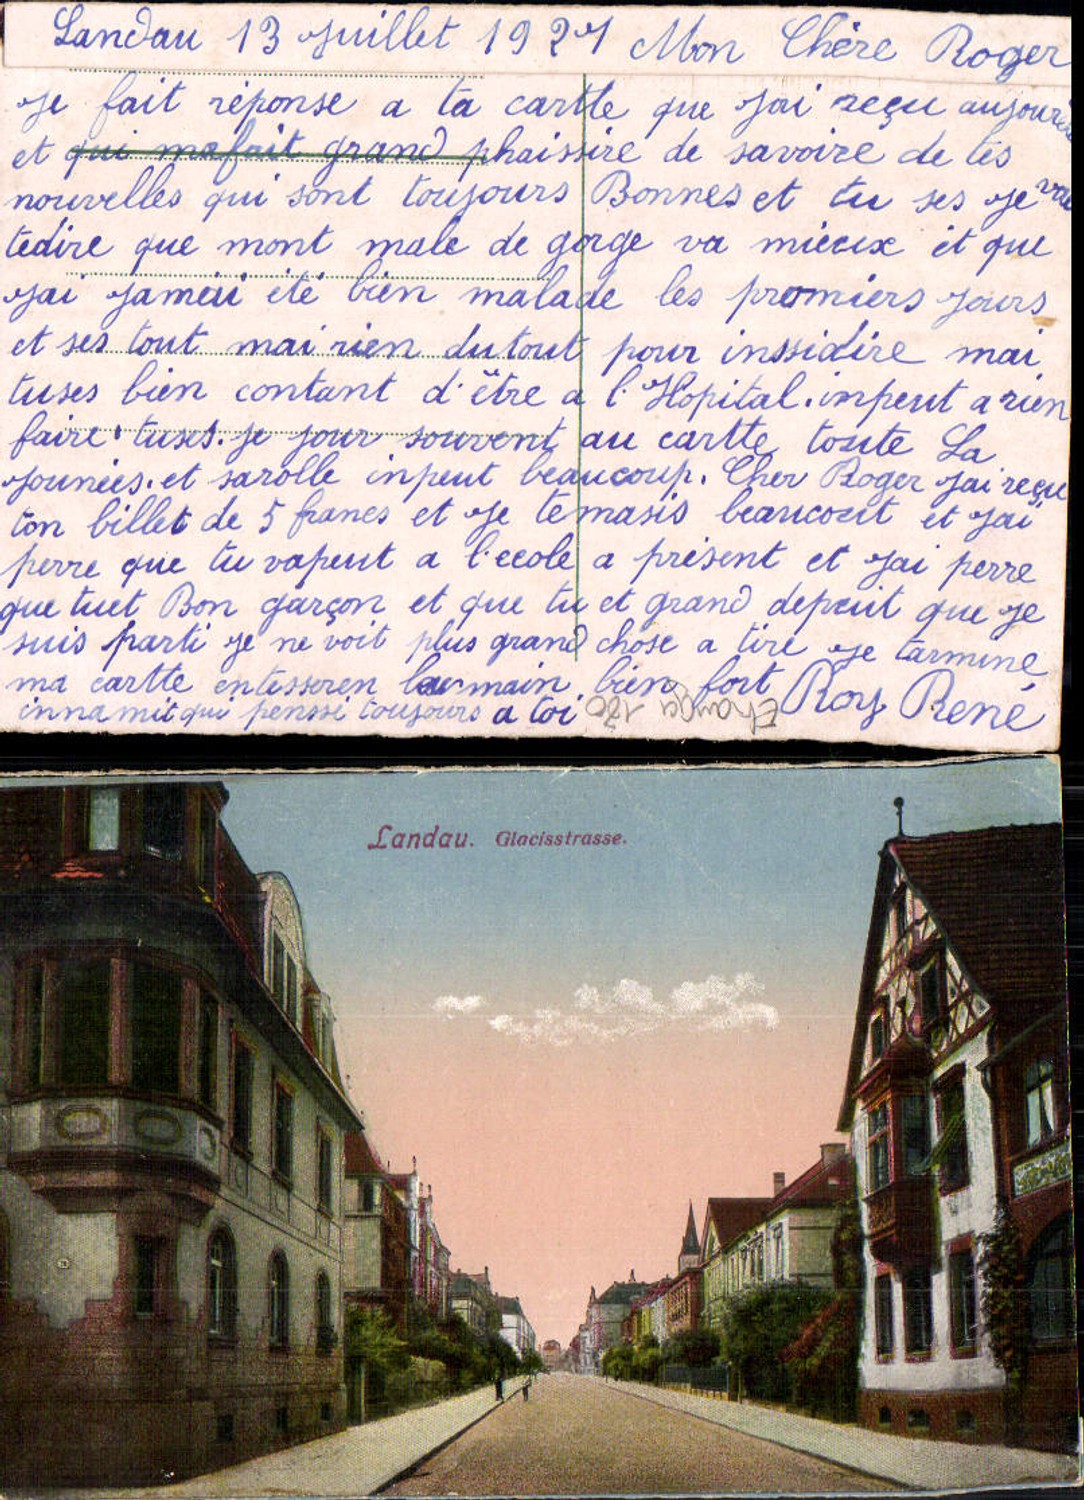 Landau 13 Juillet 1921 Mon Chère Roger
Je fait réponse a ta cartte que Jai reçu aujour
et qui mefait grand phaissire de savoire de tes
nouvelles qui sont toujours Bonnes et tu ses je
tedire que mont male de gorge va mieux et que
Jai Jamais été bien malade les promiers Jours
et ses tout mai rien dutout pour inssidire mai
tuses bien contant d'être a l'Hopital. inpeut a rien
faire tuses. Je jour souvent au cartte toute La
Jounées. et sarolle inpeut beaucoup. Cher Roger Jai reçu
ton billet de 5 francs et Je temasis beaucout et Jai
perre que tu vapeut a l'ecole a présent et Jai perre
que tuet Bon garçon et que tu et grand depuit que Je
suis parti Je ne voit plus grand chose a tire Je tarmine
ma cartte entesseren la main bien fort Roy René
innamit qui penssé toujours a toi
Landau. Glacisstrasse.